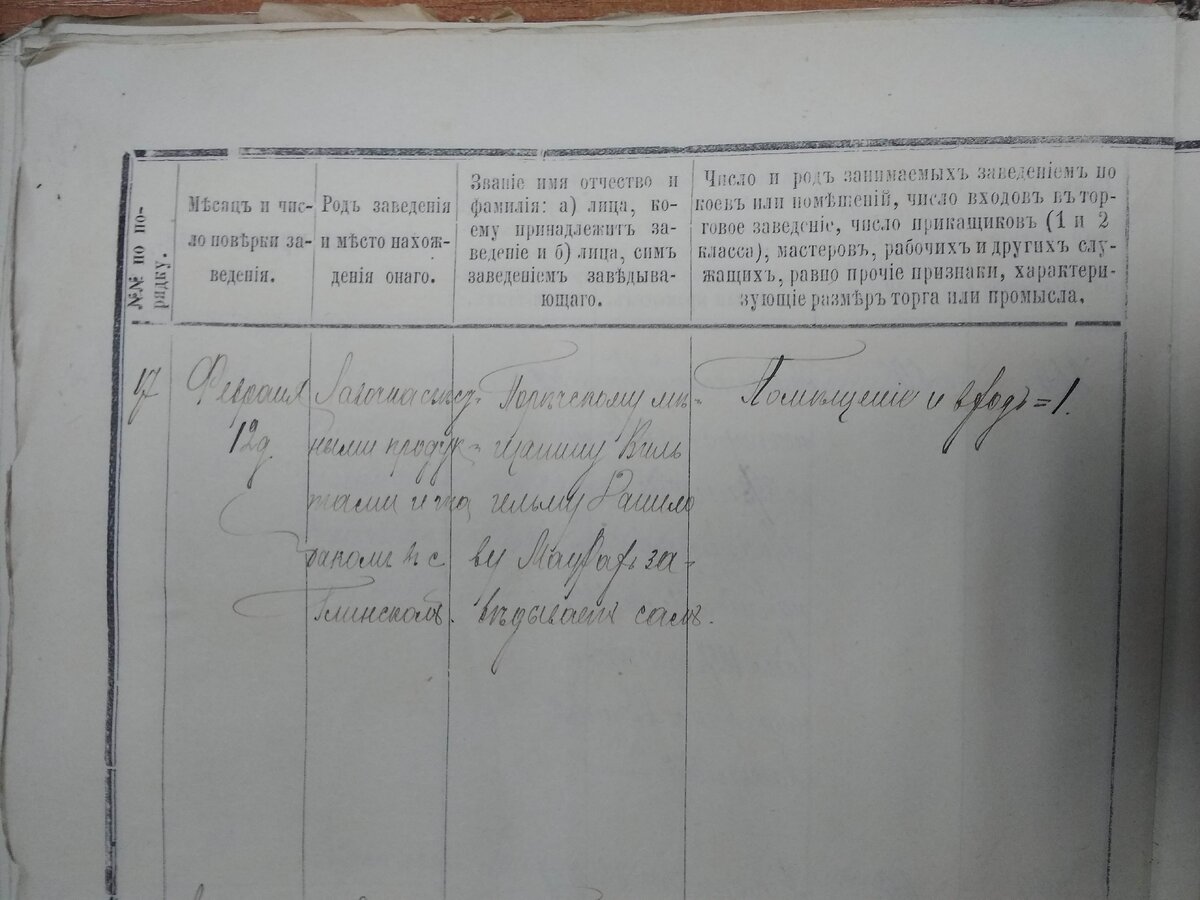 №№ по по-
рядку.
Мѣсяцъ и чис-
ло повѣрки за-
веденія.
Родъ заведенія
и мѣсто нахож-
денія онаго.
Званіе имя отчество и
фамилія: а) лица, ко-
ему принадлежит за-
веденіе и б) лица, симъ
заведеніемъ завѣдываю-
щаго.
Число и родъ занимаемыхъ заведеніемъ по
коевъ или помѣщеній, число входовъ въ тор-
говое заведеніе, число прикащиковъ (1 и 2
класса), мастеровъ, рабочихъ и другихъ слу-
жащихъ, равно прочіе признаки, характери-
зующіе размѣръ торга или промысла.
17
Февраля
12 д.
Лавочка съ
ными продук-
тами и та
бакомъ въ с
Глинскомъ.
мѣ-
щанину Виль
гельму Данило
ву за-
вѣдываетъ самъ.
Помѣщеніе и входъ = 1.